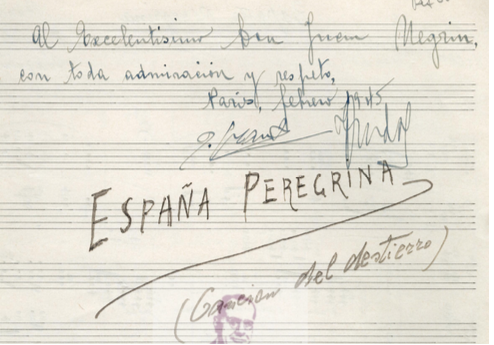 Al Excelentísimo Don Juan Negrín,
con toda admiración y respeto,
París, febrero 1945
ESPAÑA PEREGRINA
(Canción del destierro)